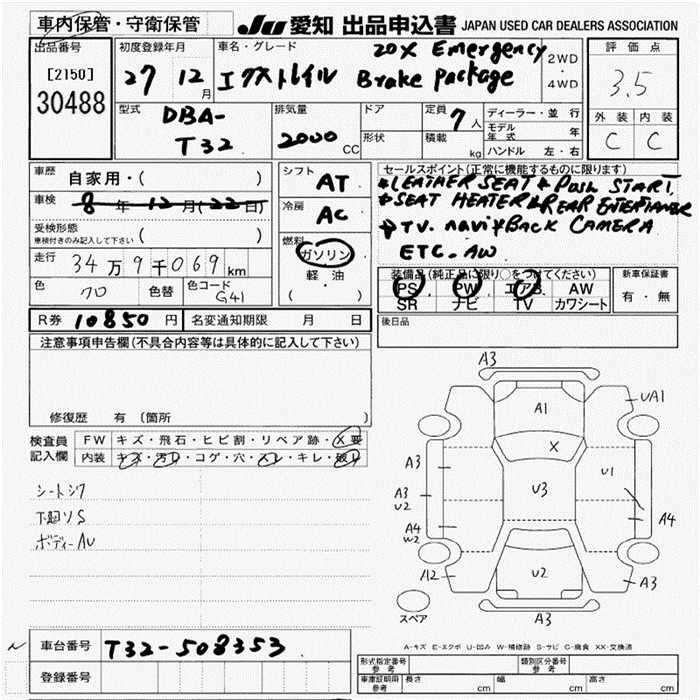 車内保管・守衛保管 JU 愛知 出品申込書 JAPAN USED CAR DEALERS ASSOCIATION
出品番号 初度登録年月 車名・グレード 評価点
[2150] 27 12月 エクストレイル 20X Emergency Brake package 2WD・4WD 3.5
30488
型式 排気量 ドア 定員 ディーラー・並行 外装 内装
DBA-T32 2000CC 形状 7人 モデル年式 年 C C
積載 kg ハンドル 左・右
車歴 自家用・( ) シフト AT セールスポイント(正常に機能するものに限ります)
車検 8年12月(22日) 冷房 AC LEATHER SEAT PUSH START,
SEAT HEATER REAR ENTERTAINER
受検形態 ( ) TV. navi BACK CAMERA
車検付きのみ記入して下さい 燃料 ガソリン ETC. AW
走行 34万9千069km 軽・油 装備品(純正品に限り○をつけてください) 新車保証書
色 クロ 色替 色コード G41 ( ・ ) PS PW エアB AW 有・無
SR ナビ TV カワシート
R券 10850円 名変通知期限 月 日 後日品
注意事項申告欄(不具合内容等は具体的に記入して下さい)
修復歴 有 〔箇所 〕
検査員記入欄 FW キズ・飛石・ヒビ割・リペア跡・X要
内装 キズ・汚レ・コゲ・穴・スレ・キレ・破レ
シートシワ
下廻りS
ボディーAU
A3
A1 UA1
X
A3 U1
A3 U3
U2
A4 A4
W2
A12 U2 A3
スペア A3
A-キズ E-エクボ U-凹み W-補修跡 S-サビ C-腐食 XX-交換済
車台番号 T32-508353
登録番号
型式指定番号 参考 類別区分番号 参考
車庫証明用 参考 長さ cm 幅 cm 高さ cm